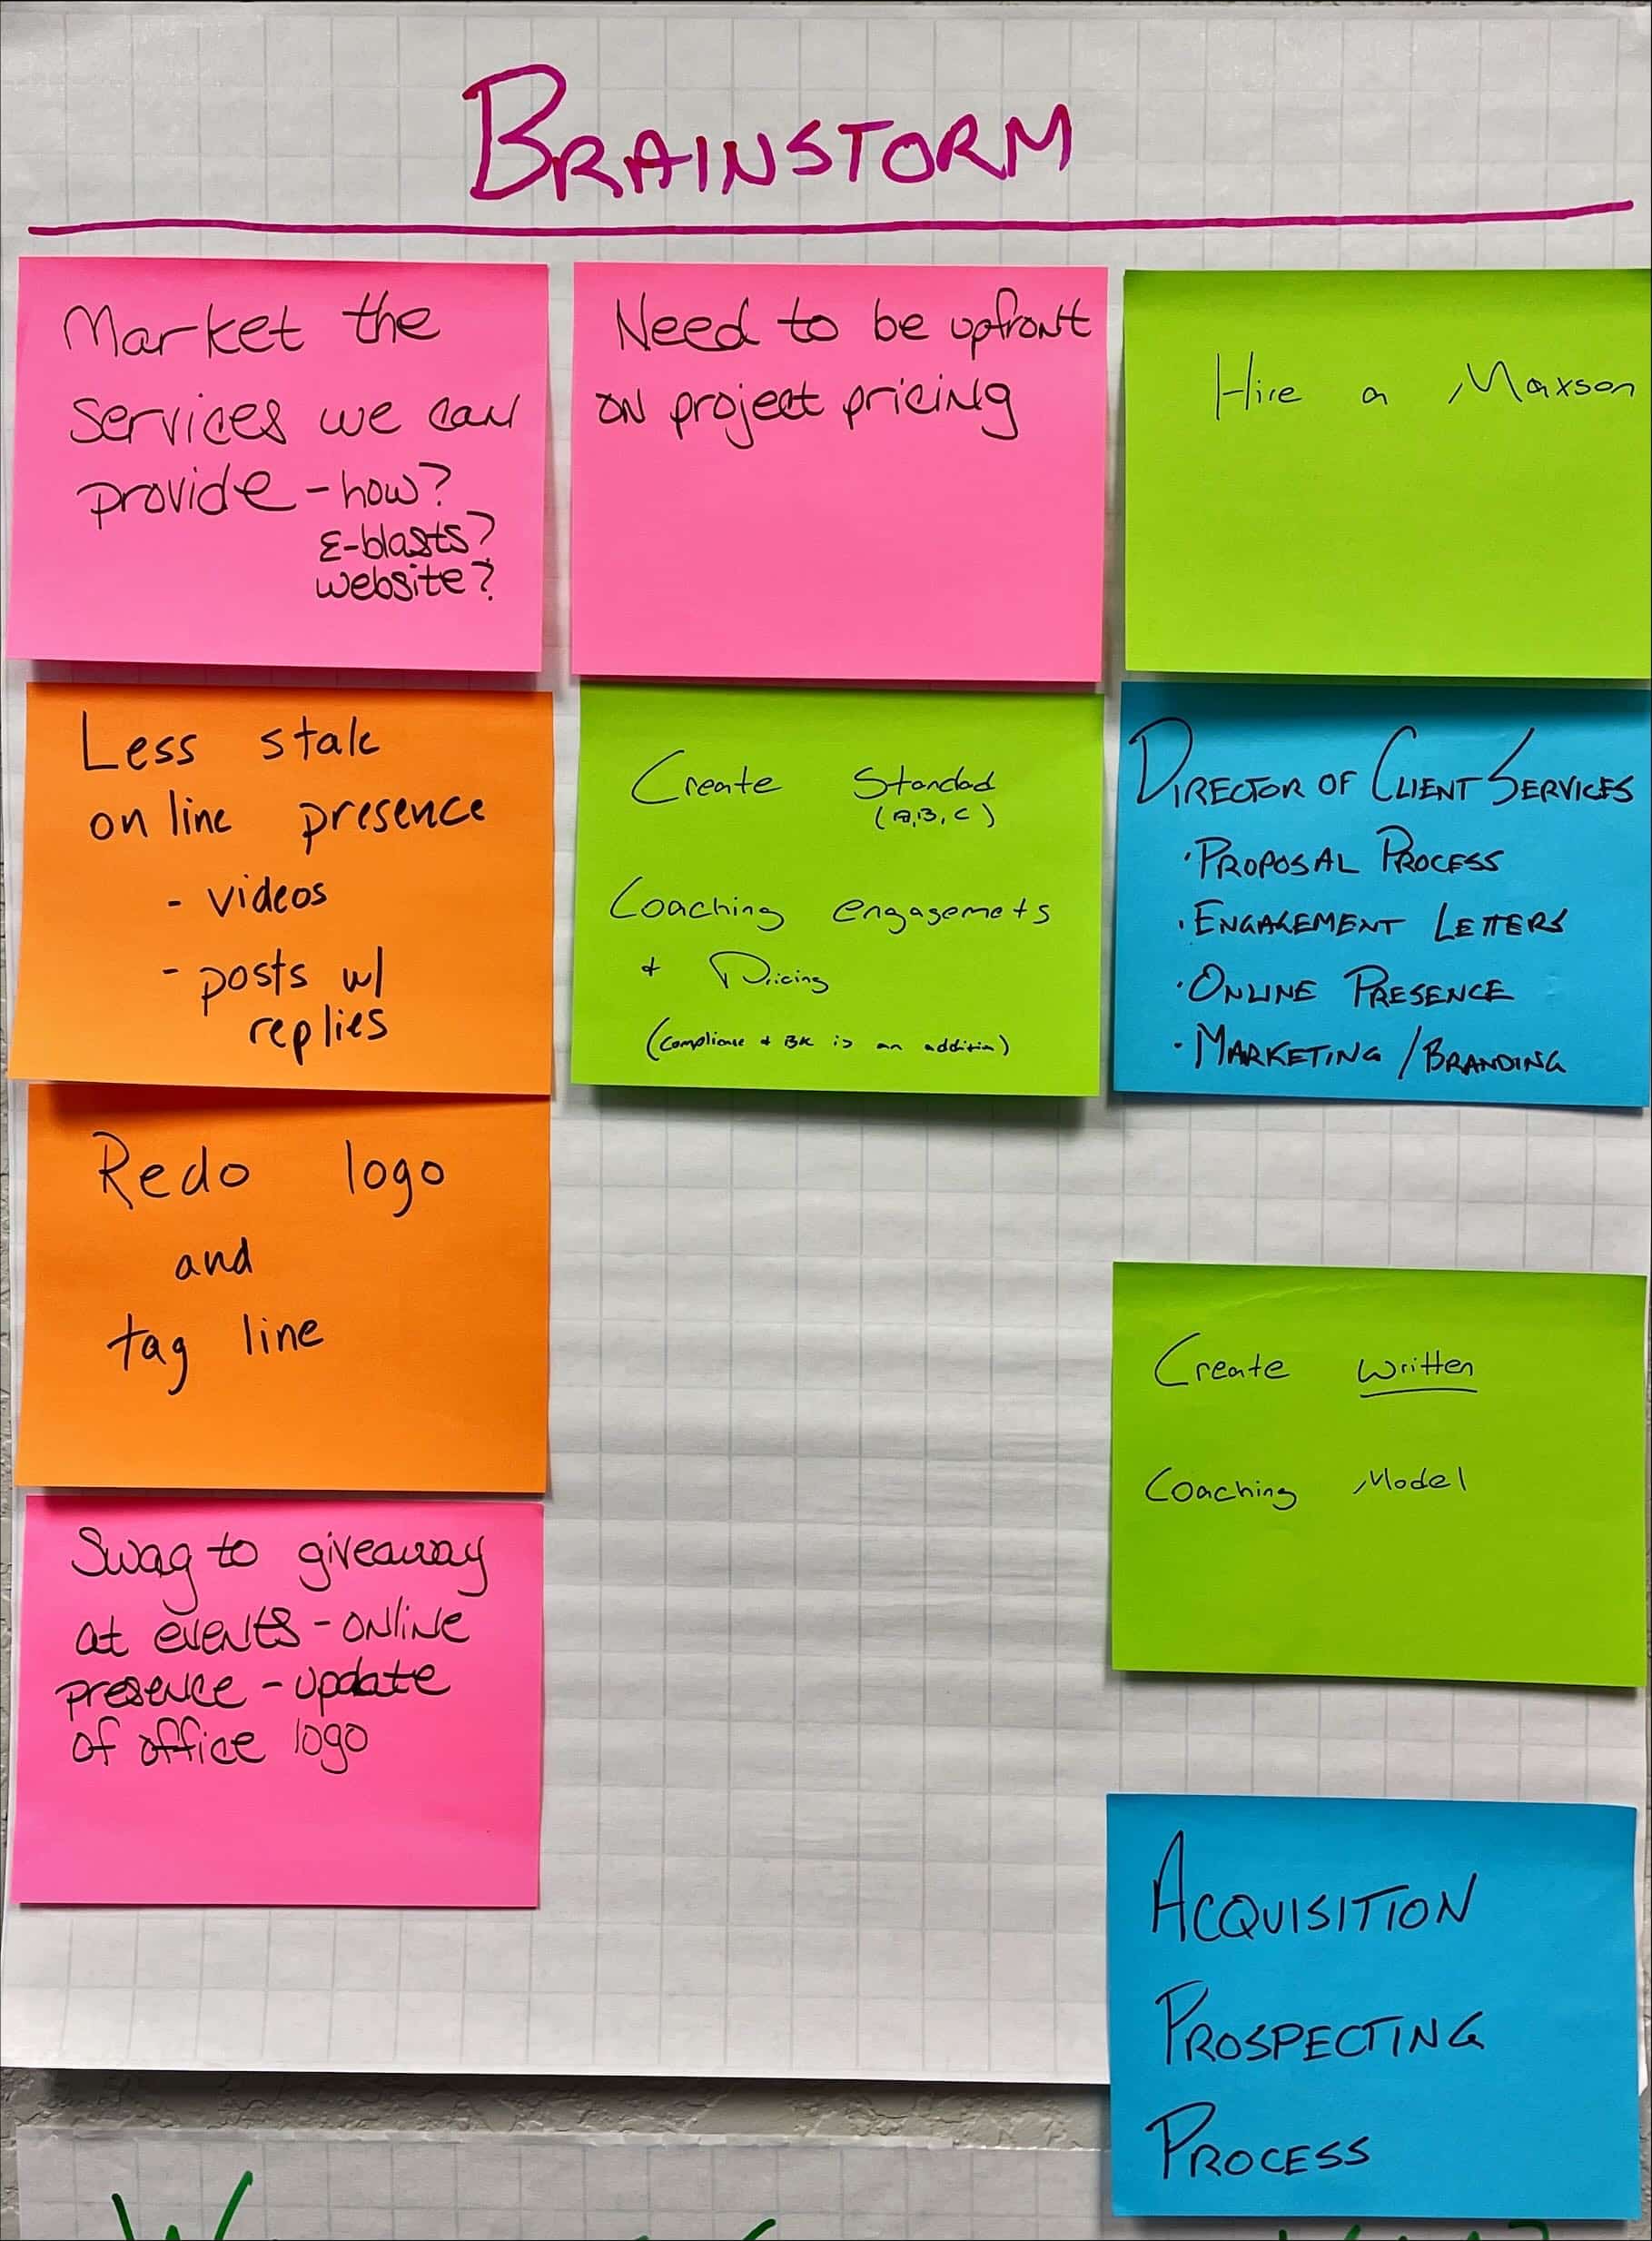 BRAINSTORM
Market the
services we can
provide - how?
E-blasts?
website?
Less stale
online presence
- videos
- posts w/
replies
Redo logo
and
tag line
Swag to giveaway
at events - online
presence - update
of office logo
Need to be upfront
on project pricing
Create Standad
(A, B, C)
Coaching engagemets
+ Pricing
(Compliance + BK is an addition)
Hire a Maxson
DIRECTOR OF CLIENT SERVICES
· PROPOSAL PROCESS
· ENGAGEMENT LETTERS
· ONLINE PRESENCE
· MARKETING / BRANDING
Create written
Coaching Model
ACQUISITION
PROSPECTING
PROCESS